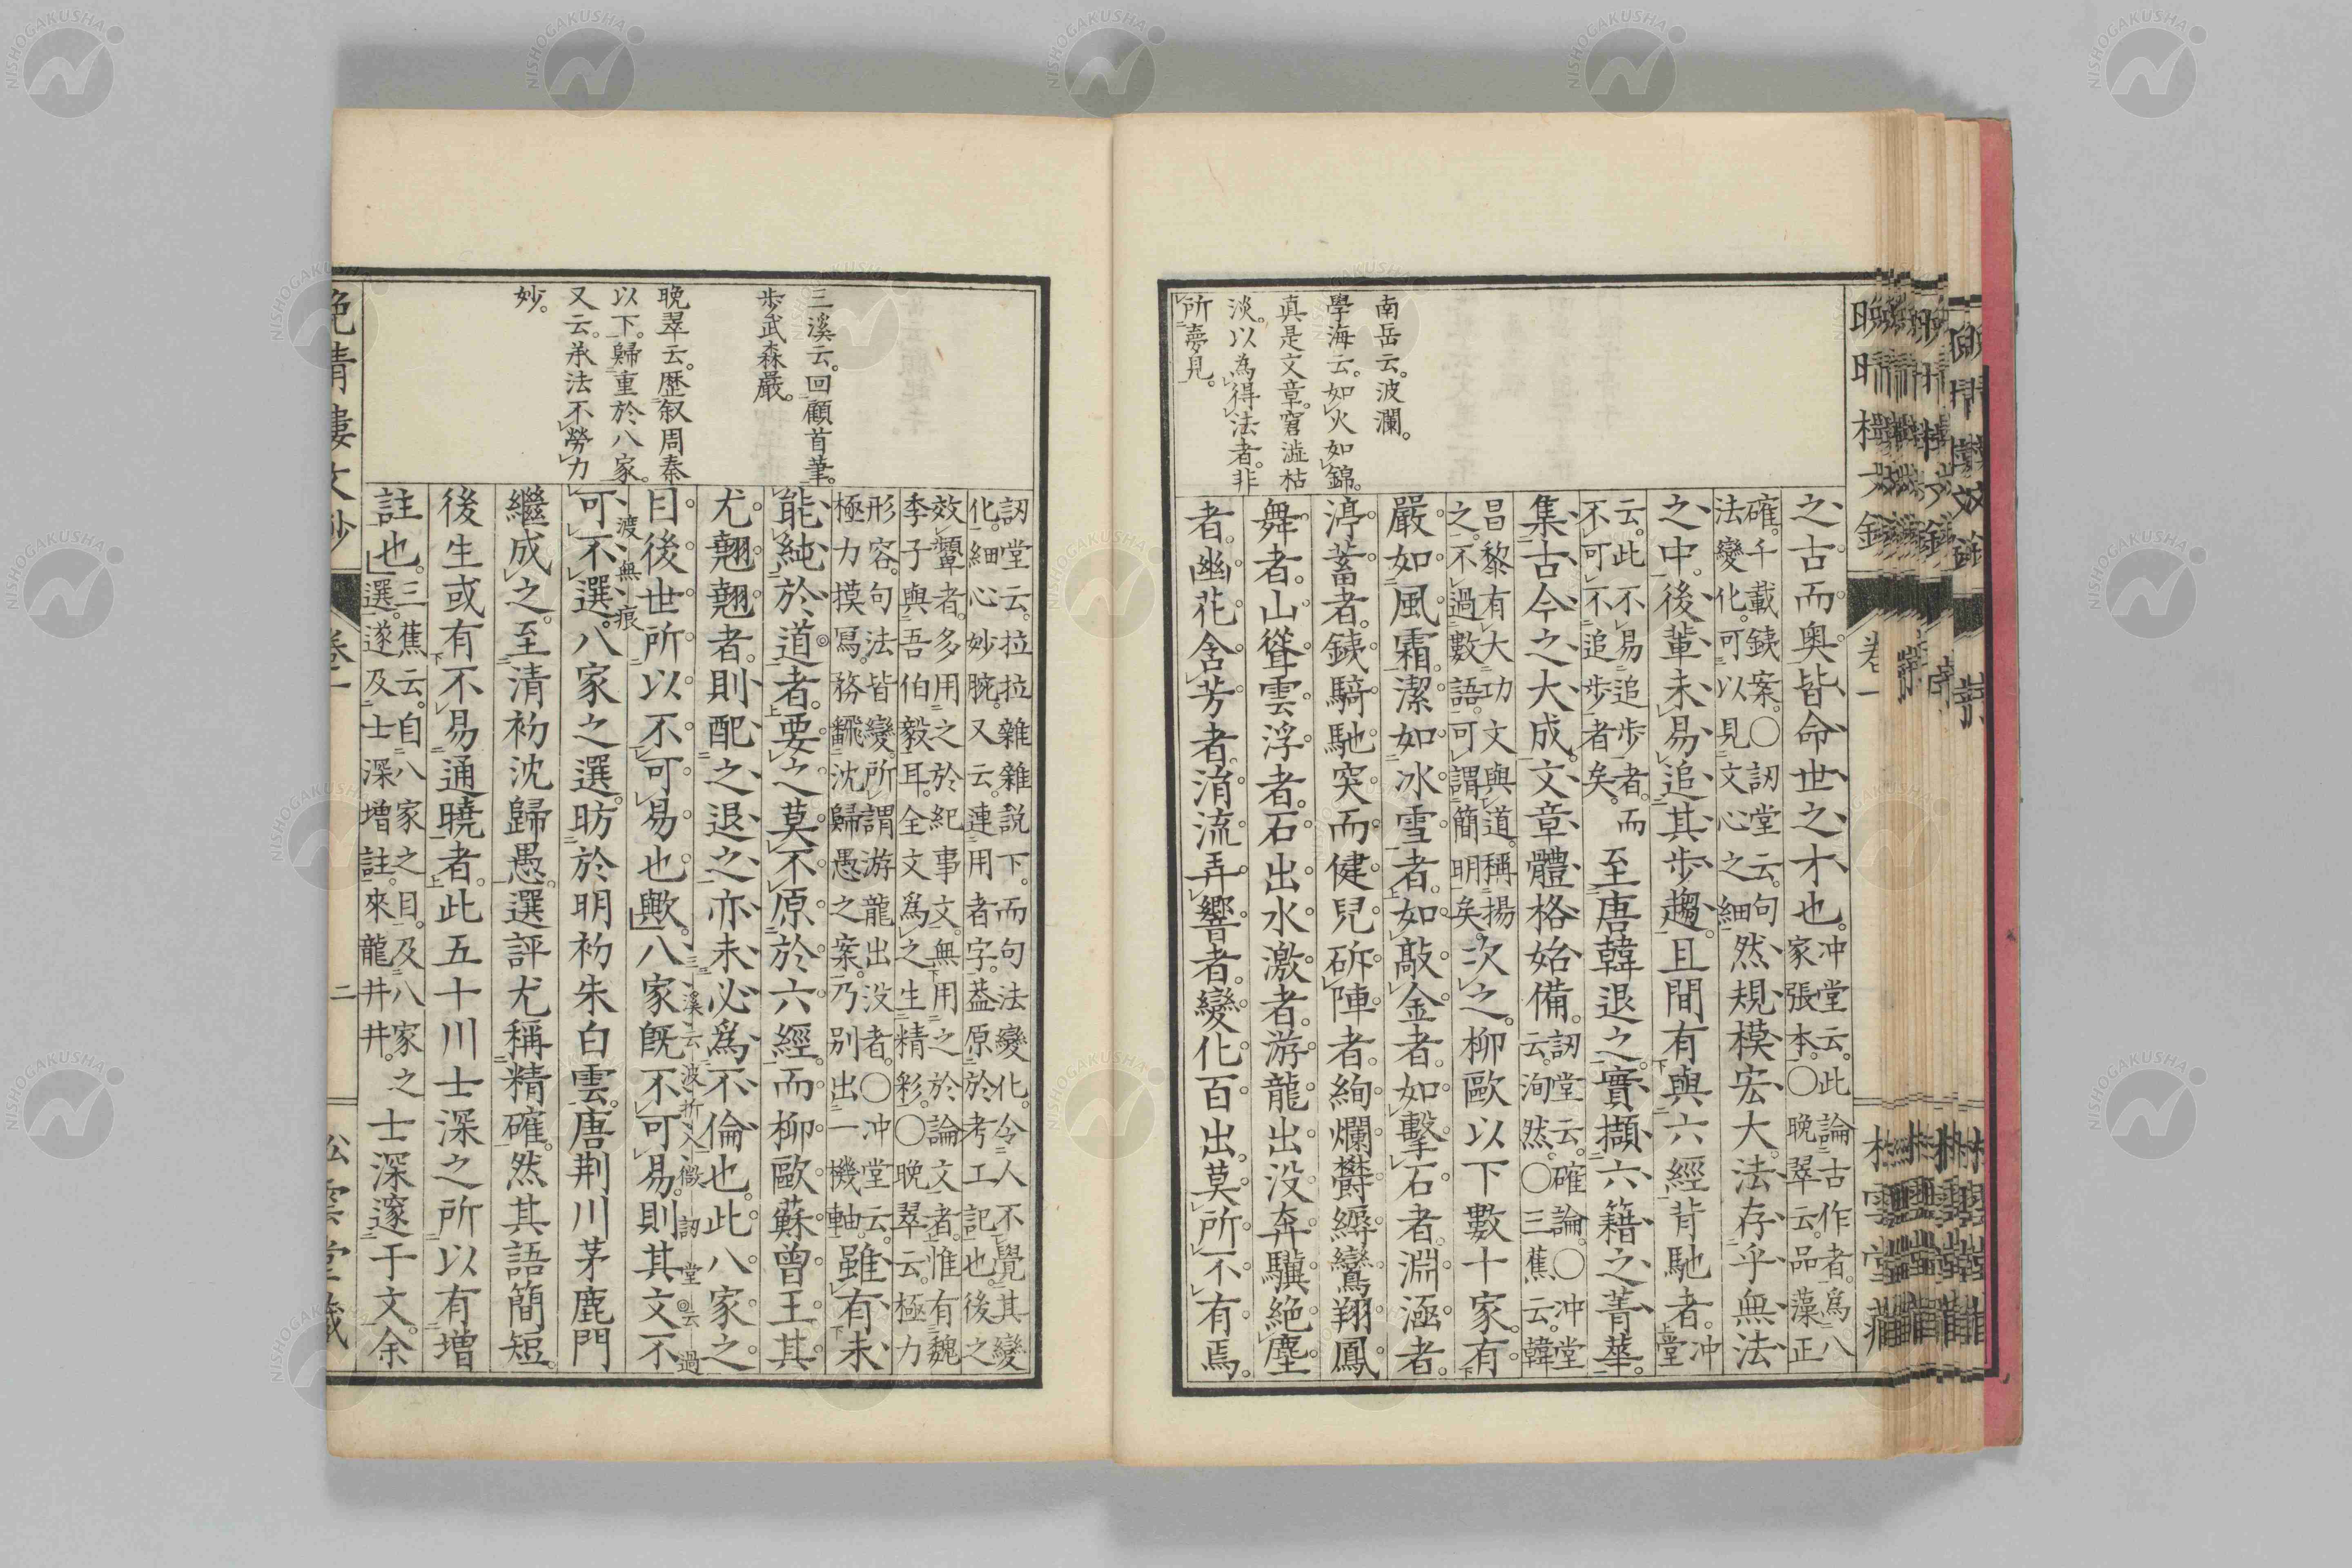 南岳云。波瀾。
學海云。如火如錦。
真是文章。窘澁枯
淡。以為得法者。非
所夢見。
之古而奥。皆命世之才也。冲堂云。此論古作者。爲八
家張本。〇晩翠云。品藻正
確。千載銕案。〇訒堂云。句
法變化。可以見文心之細然規模宏大。法存乎無法
之中。後輩未易追其步趨。且間有與六經背馳者。冲
堂
云。此不易追步者。而
不可不追步者矣。至唐韓退之。實擷六籍之菁華。
集古今之大成。文章體格始備。訒堂云。確論。〇冲堂
云。洵然。〇三蕉云。韓
昌黎有大功文與道。稱揚
之。不過數語。可謂簡明矣。次之。柳歐以下數十家。有
嚴如風霜。潔如冰雪者。如敲金者。如擊石者。淵涵者。
渟蓄者。銕騎馳突而健兒斫陣者。絢爛欝縟鸞翔鳳
舞者。山聳雲浮者。石出水激者。游龍出没奔驥絶塵
者。幽花含芳者。涓流弄響者。變化百出。莫所不有焉。
三溪云。回顧首筆。
步武森嚴。
晩翠云。歷叙周秦
以下。歸重於八家。
又云。承法不勞力
妙。
訒堂云。拉拉雜雜説下。而句法變化。令人不覺其變
化。細心妙腕。又云。連用者字。葢原於考工記也。後之
效顰者。多用之於紀事文。無用之於論文者。惟有魏
李子與吾伯毅耳。全文爲之生精彩。〇晩翠云。極力
形容。句法皆變。所謂游龍出没者。〇冲堂云。
極力摸冩。務飜沈歸愚之案。乃別出一機軸。雖有未
能純於道者。要之莫不原於六經。而柳歐蘇曾王其
尤翹翹者。則配之退之。亦未必爲不倫也。此八家之
目。後世所以不可易也歟。三溪云波折入微訒堂云過渡無痕八家既不可易。則其文不
可不選。八家之選。昉於明初朱白雲。唐荆川茅鹿門
繼成之。至清初沈歸愚。選評尤稱精確。然其語簡短。
後生或有不易通曉者。此五十川士深之所以有増
註也。三蕉云。自八家之目。及八家之
選。遂及士深増註。來龍井井。士深邃于文。余
晩晴樓文鈔 卷一 二 松雲堂藏